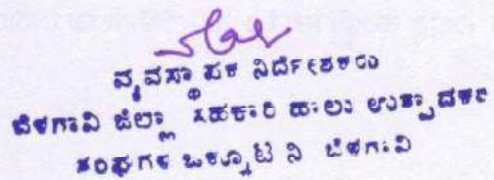 ವ್ಯವಸ್ಥಾಪಕ ನಿರ್ದೇಶಕರು
ಬೆಳಗಾವಿ ಜಿಲ್ಲಾ ಸಹಕಾರಿ ಹಾಲು ಉತ್ಪಾದಕರ
ಸಂಘಗಳ ಒಕ್ಕೂಟ ನಿ ಬೆಳಗಾವಿ